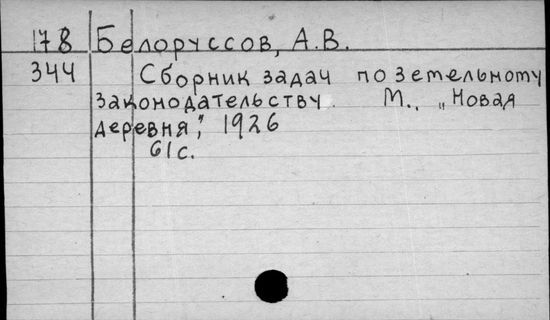 178 Белоруссов, А.В.
344 Сборник задач по земельному
законодательству. М., „Новая
деревня", 1926
61с.